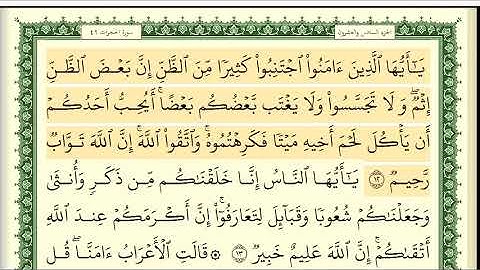 سورة الحجرات ٤٩
الجزء السادس والعشرون
يَٰٓأَيُّهَا ٱلَّذِينَ ءَامَنُوا۟ ٱجْتَنِبُوا۟ كَثِيرًا مِّنَ ٱلظَّنِّ إِنَّ بَعْضَ ٱلظَّنِّ
إِثْمٌ ۖ وَلَا تَجَسَّسُوا۟ وَلَا يَغْتَب بَّعْضُكُم بَعْضًا ۚ أَيُحِبُّ أَحَدُكُمْ
أَن يَأْكُلَ لَحْمَ أَخِيهِ مَيْتًا فَكَرِهْتُمُوهُ ۚ وَٱتَّقُوا۟ ٱللَّهَ ۚ إِنَّ ٱللَّهَ تَوَّابٌ
رَّحِيمٌ ١٢ يَٰٓأَيُّهَا ٱلنَّاسُ إِنَّا خَلَقْنَٰكُم مِّن ذَكَرٍ وَأُنثَىٰ
وَجَعَلْنَٰكُمْ شُعُوبًا وَقَبَآئِلَ لِتَعَارَفُوٓا۟ ۚ إِنَّ أَكْرَمَكُمْ عِندَ ٱللَّهِ
أَتْقَىٰكُمْ ۚ إِنَّ ٱللَّهَ عَلِيمٌ خَبِيرٌ ١٣ ۞ قَالَتِ ٱلْأَعْرَابُ ءَامَنَّا ۖ قُل